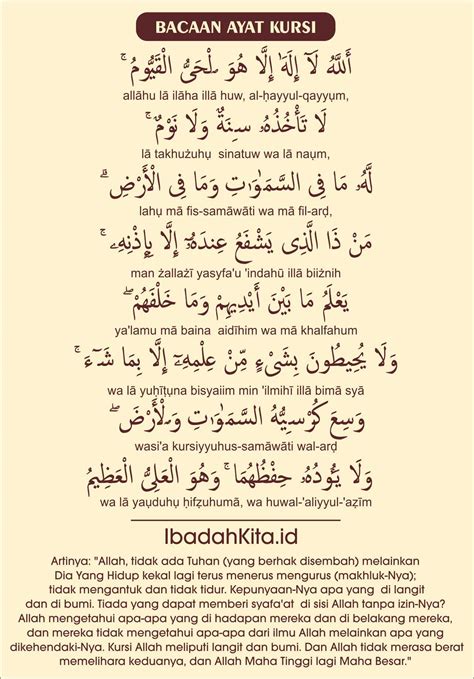 BACAAN AYAT KURSI
ٱللَّهُ لَآ إِلَٰهَ إِلَّا هُوَ ٱلْحَىُّ الْقَيُّومُ ۚ
allāhu lā ilāha illā huw, al-ḥayyul-qayyum,
لَا تَأْخُذُهُۥ سِنَةٌ وَلَا نَوْمٌ ۚ
lā takhużuhụ sinatuw wa lā naụm,
لَّهُۥ مَا فِى السَّمَٰوَٰتِ وَمَا فِى الْأَرْضِ ۗ
lahụ mā fis-samāwāti wa mā fil-arḍ,
مَنْ ذَا الَّذِى يَشْفَعُ عِندَهُۥٓ إِلَّا بِإِذْنِهِۦ ۚ
man żallażī yasyfa'u 'indahū illā biiżnih
يَعْلَمُ مَا بَيْنَ أَيْدِيهِمْ وَمَا خَلْفَهُمْ ۖ
ya'lamu mā baina aidīhim wa mā khalfahum
وَلَا يُحِيطُونَ بِشَىْءٍ مِّنْ عِلْمِهِۦٓ إِلَّا بِمَا شَآءَ ۚ
wa lā yuḥīṭụna bisyaiim min 'ilmihī illā bimā syā
وَسِعَ كُرْسِيُّهُ السَّمَٰوَٰتِ وَٱلْأَرْضَ ۖ
wasi'a kursiyyuhus-samāwāti wal-arḍ
وَلَا يَـُٔودُهُۥ حِفْظُهُمَا ۚ وَهُوَ الْعَلِىُّ الْعَظِيمُ
wa lā yaụduhụ ḥifẓuhumā, wa huwal-'aliyyul-'aẓīm
IbadahKita.id
Artinya: "Allah, tidak ada Tuhan (yang berhak disembah) melainkan
Dia Yang Hidup kekal lagi terus menerus mengurus (makhluk-Nya);
tidak mengantuk dan tidak tidur. Kepunyaan-Nya apa yang di langit
dan di bumi. Tiada yang dapat memberi syafa'at di sisi Allah tanpa izin-Nya?
Allah mengetahui apa-apa yang di hadapan mereka dan di belakang mereka,
dan mereka tidak mengetahui apa-apa dari ilmu Allah melainkan apa yang
dikehendaki-Nya. Kursi Allah meliputi langit dan bumi. Dan Allah tidak merasa berat
memelihara keduanya, dan Allah Maha Tinggi lagi Maha Besar."